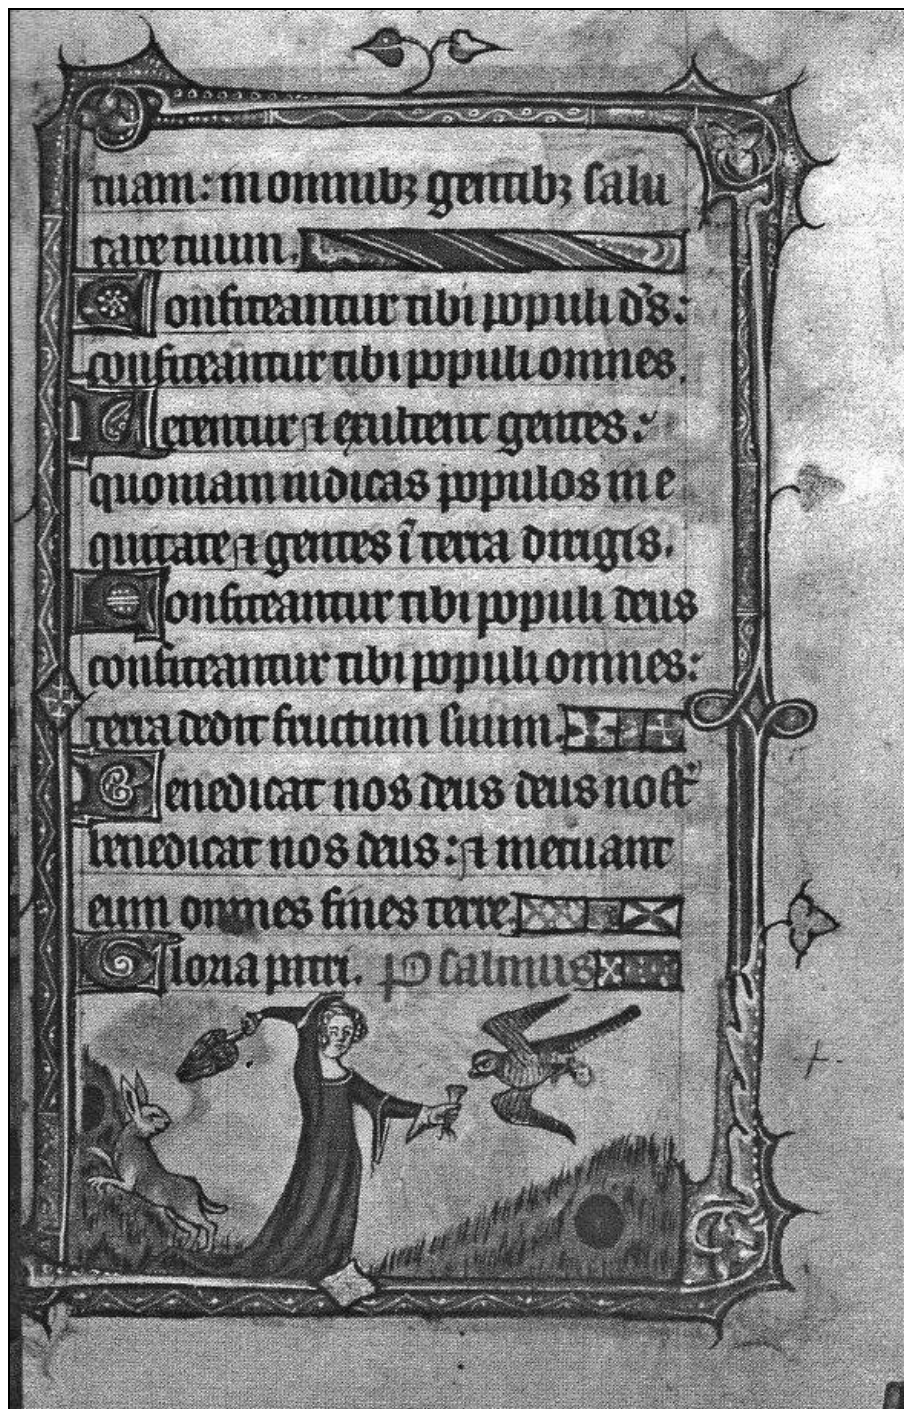 tuam: in omnibꝫ gentibꝫ salu
tare tuum.
Confiteantur tibi populi ds̄:
confiteantur tibi populi omnes.
Letentur ⁊ exultent gentes:
quoniam iudicas populos in e
quitate ⁊ gentes ī terra dirigis.
Confiteantur tibi populi deus
confiteantur tibi populi omnes:
terra dedit fructum suum.
Benedicat nos deus deus nost̄
benedicat nos deus: ⁊ metuant
eum omnes fines terre.
Gloria patri. Psalmus